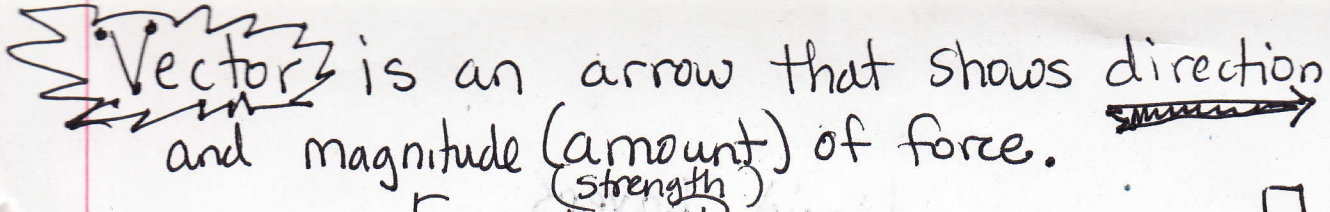 Vector is an arrow that shows direction
and magnitude (amount) of force.
(strength)